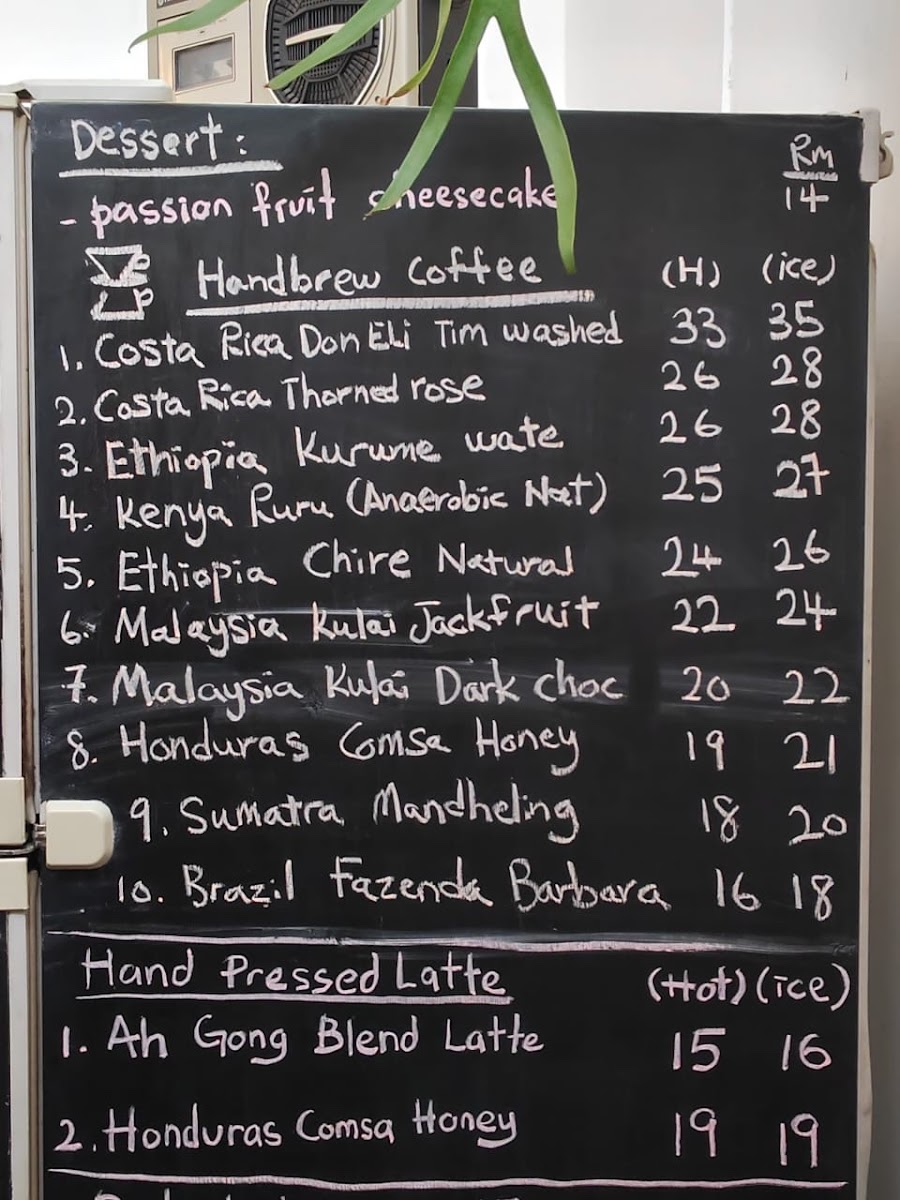 Dessert:
RM
- passion fruit cheesecake 14
Handbrew Coffee (H) (ice)
1. Costa Rica Don Eli Tim washed 33 35
2. Costa Rica Thorned rose 26 28
3. Ethiopia Kurume wate 26 28
4. Kenya Ruru (Anaerobic Nat) 25 27
5. Ethiopia Chire Natural 24 26
6. Malaysia Kulai Jackfruit 22 24
7. Malaysia Kulai Dark choc 20 22
8. Honduras Comsa Honey 19 21
9. Sumatra Mandheling 18 20
10. Brazil Fazenda Barbara 16 18
Hand Pressed Latte (Hot) (ice)
1. Ah Gong Blend Latte 15 16
2. Honduras Comsa Honey 19 19